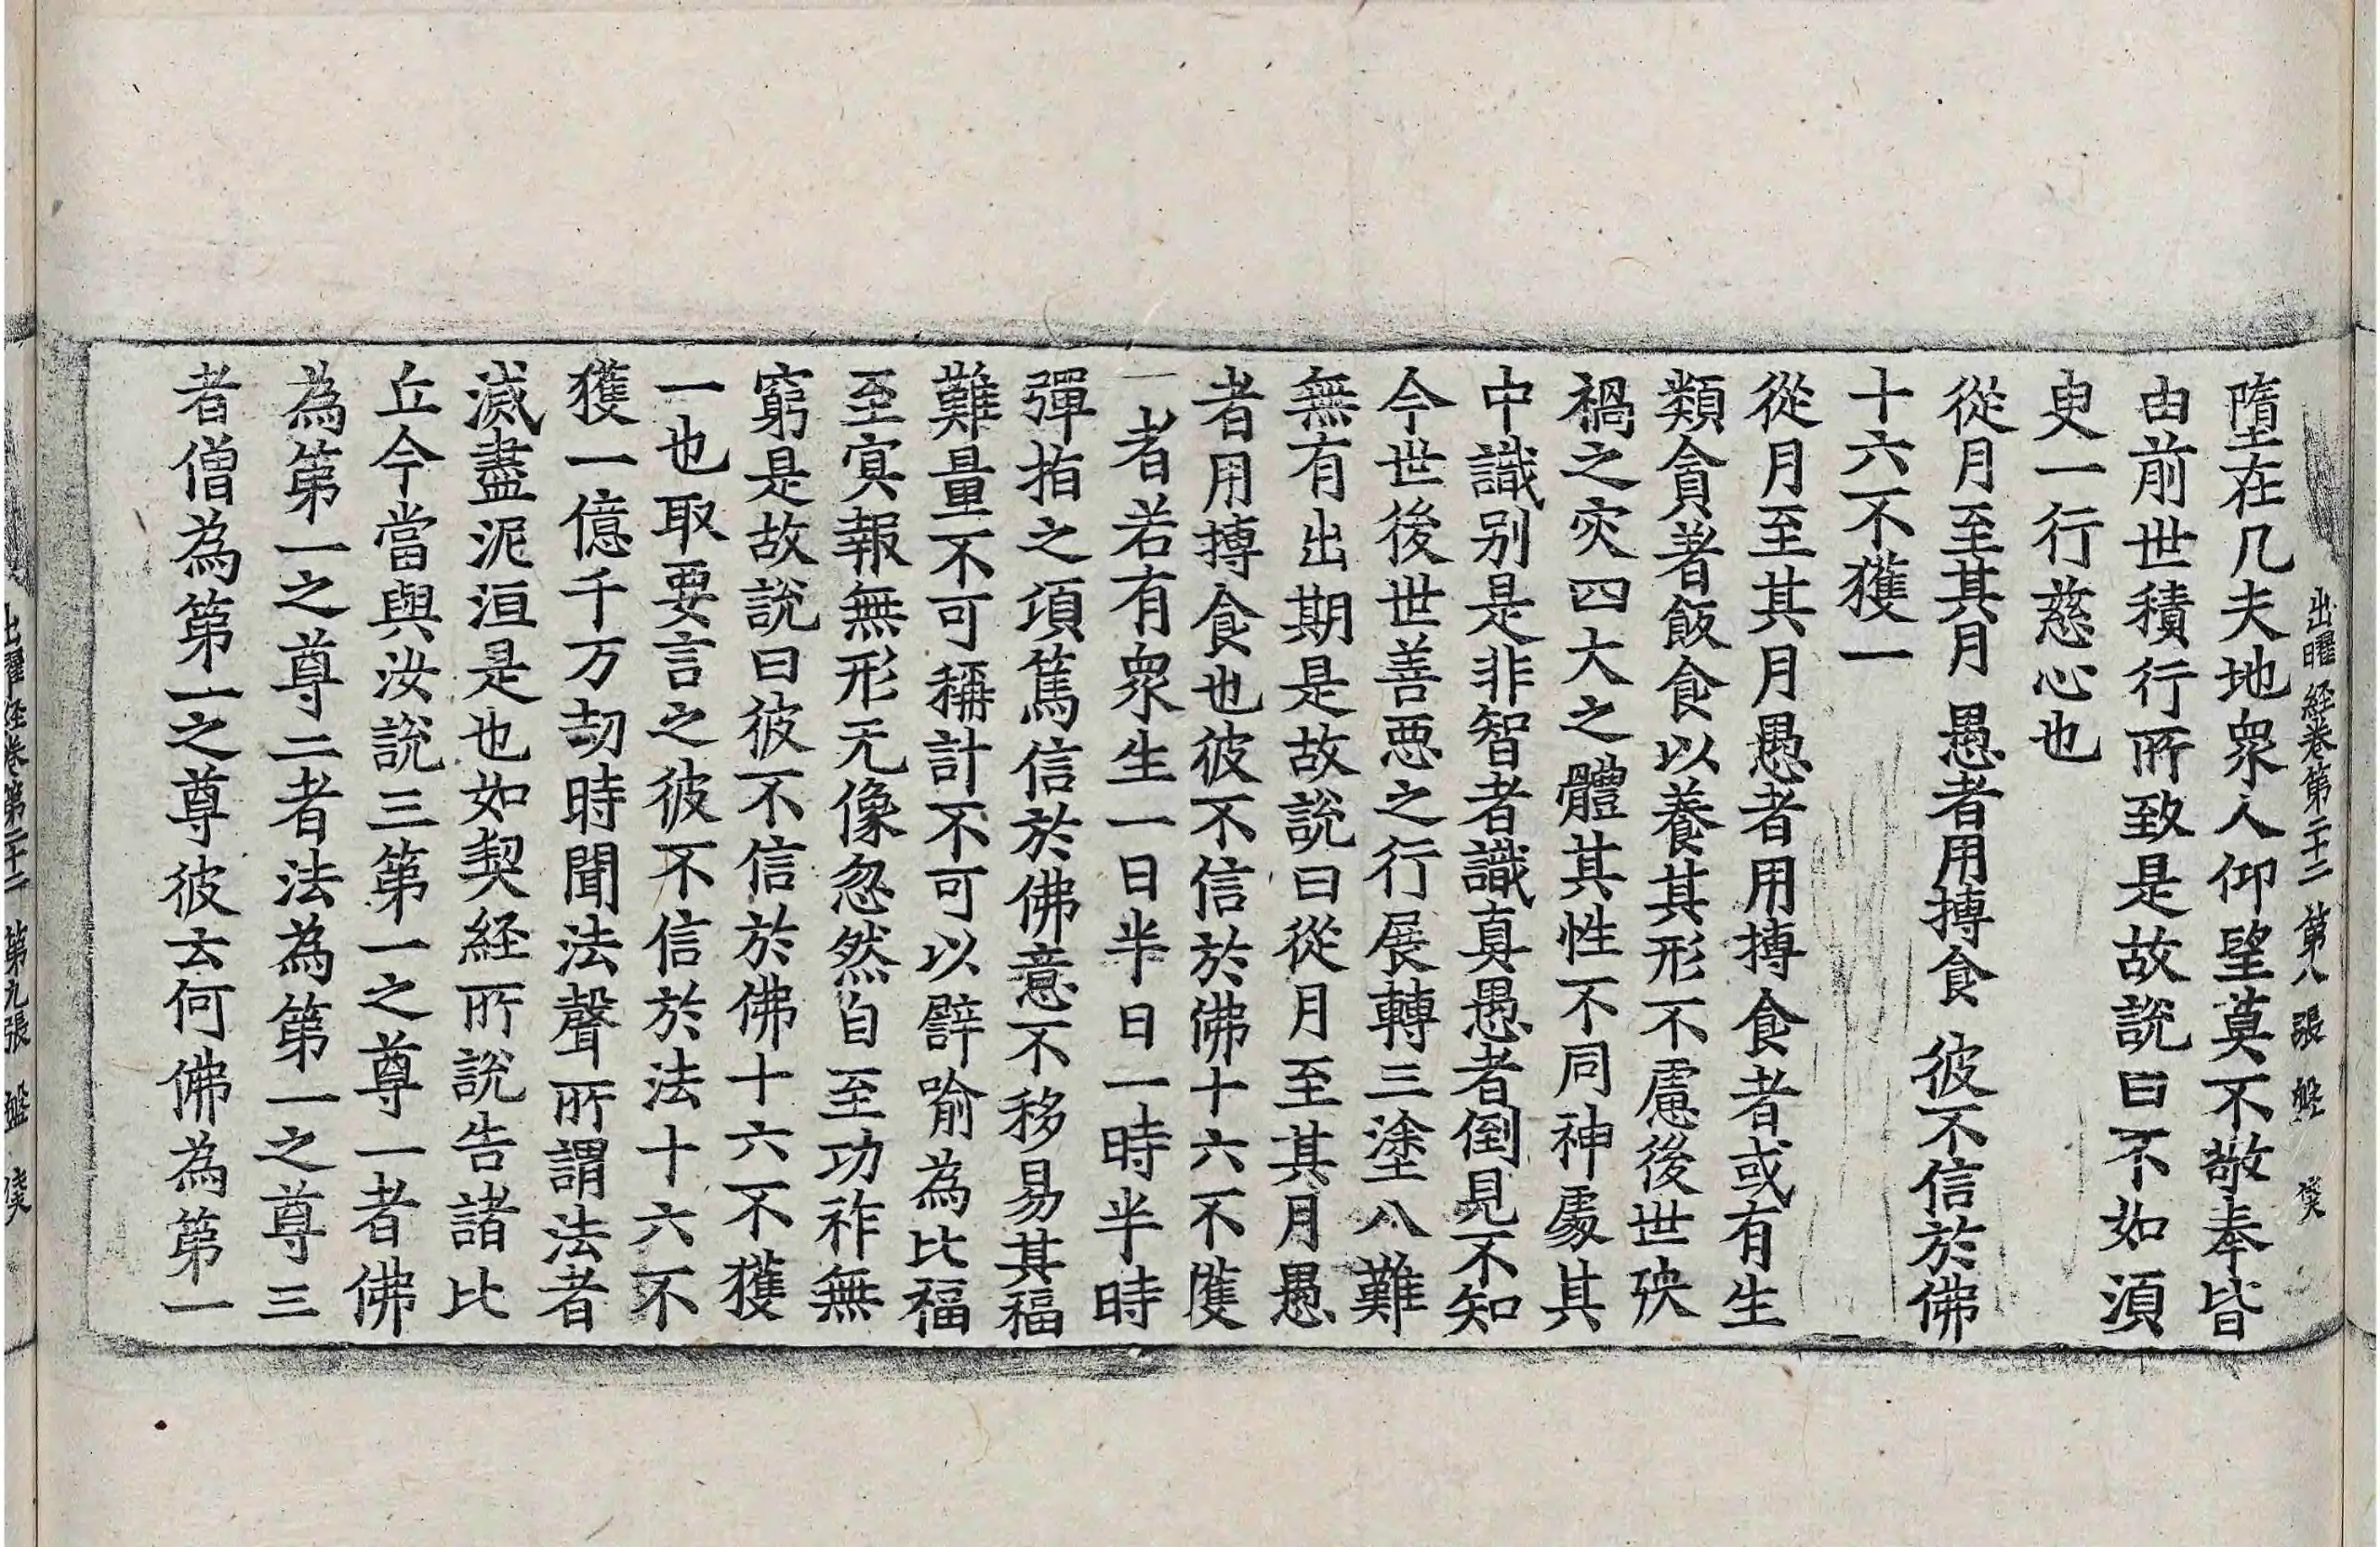 出曜経卷第二十二 第八張 盤
墮在凡夫地衆人仰望莫不敬奉皆
由前世積行所致是故說曰不如湏
臾一行慈心也
從月至其月 愚者用摶食 彼不信於佛
十六不獲一
從月至其月愚者用摶食者或有生
類貪著飯食以養其形不慮後世殃
禍之灾四大之體其性不同神處其
中識别是非智者識真愚者倒見不知
今世後世善惡之行展轉三塗八難
無有出期是故說曰從月至其月愚
者用摶食也彼不信於佛十六不獲
一者若有衆生一日半日一時半時
彈指之項篤信於佛意不移易其福
難量不可稱計不可以譬喻為比福
至寘報無形无像忽然自至功祚無
窮是故說曰彼不信於佛十六不獲
一也取要言之彼不信於法十六不
獲一億千万劫時聞法聲所謂法者
滅盡泥洹是也如契経所說告諸比
丘今當與汝說三第一之尊一者佛
為第一之尊二者法為第一之尊三
者僧為第一之尊彼云何佛為第一
出曜経卷第二十二 第九張 盤